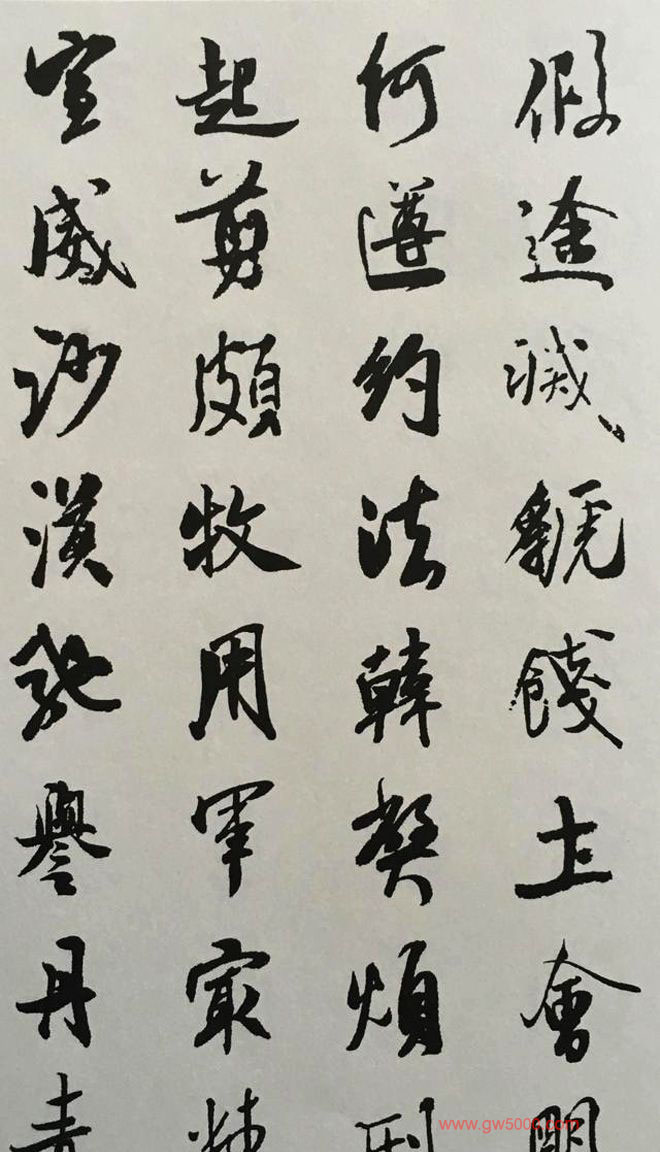 假途滅虢餞土會盟
何遵約法韓弊煩刑
起剪頗牧用軍㝡精
宣威沙漠馳譽丹青
www.gw5000.com